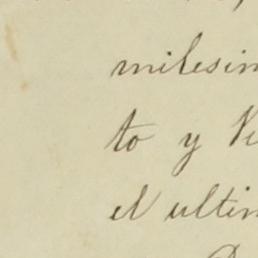 milesim
to y Ve
el ultim